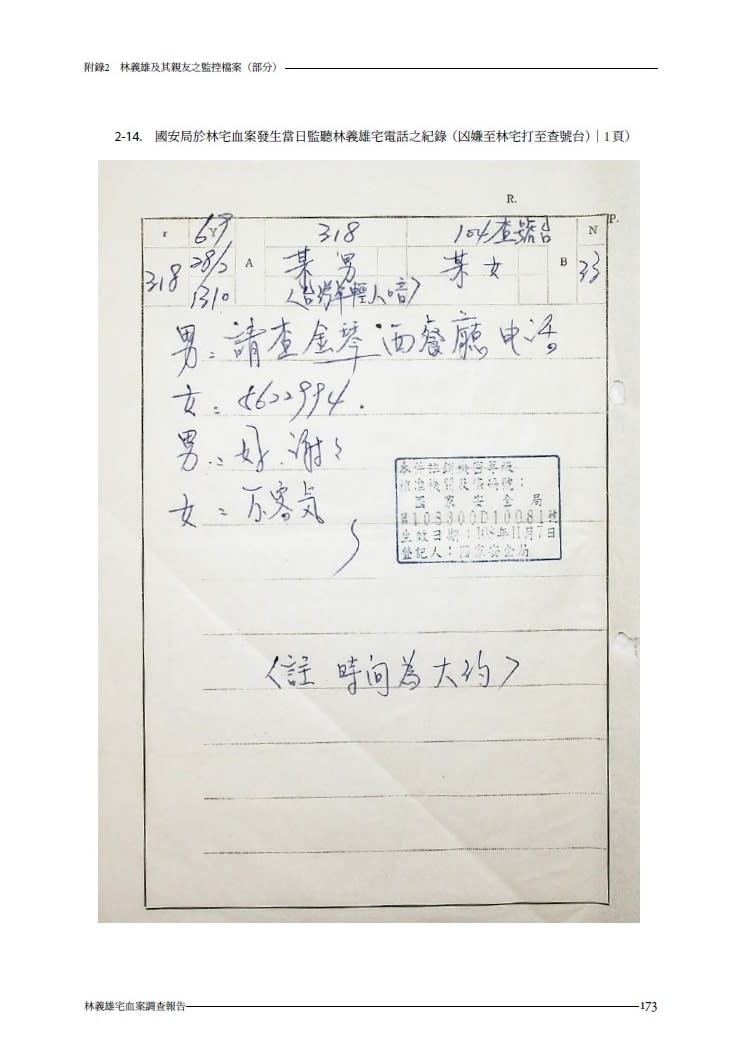 附錄2 林義雄及其親友之監控檔案（部分）
2-14. 國安局於林宅血案發生當日監聽林義雄宅電話之紀錄（凶嫌至林宅打至查號台）｜1頁）
R.
P.
r Y 69 318 104查號台 N
318 28/2 A 某男 某女 B 33
1310 〈台灣年輕人口音〉
男：請查金琴西餐廳电话
女：5622994.
男：好.謝々
女：不客気
本件註銷機密等級
核准機關及案碼號：
國家安全局
第108300D10081號
生效日期：108年11月7日
登記人：國家安全局
〈註 時间為大約〉
林義雄宅血案調查報告 173